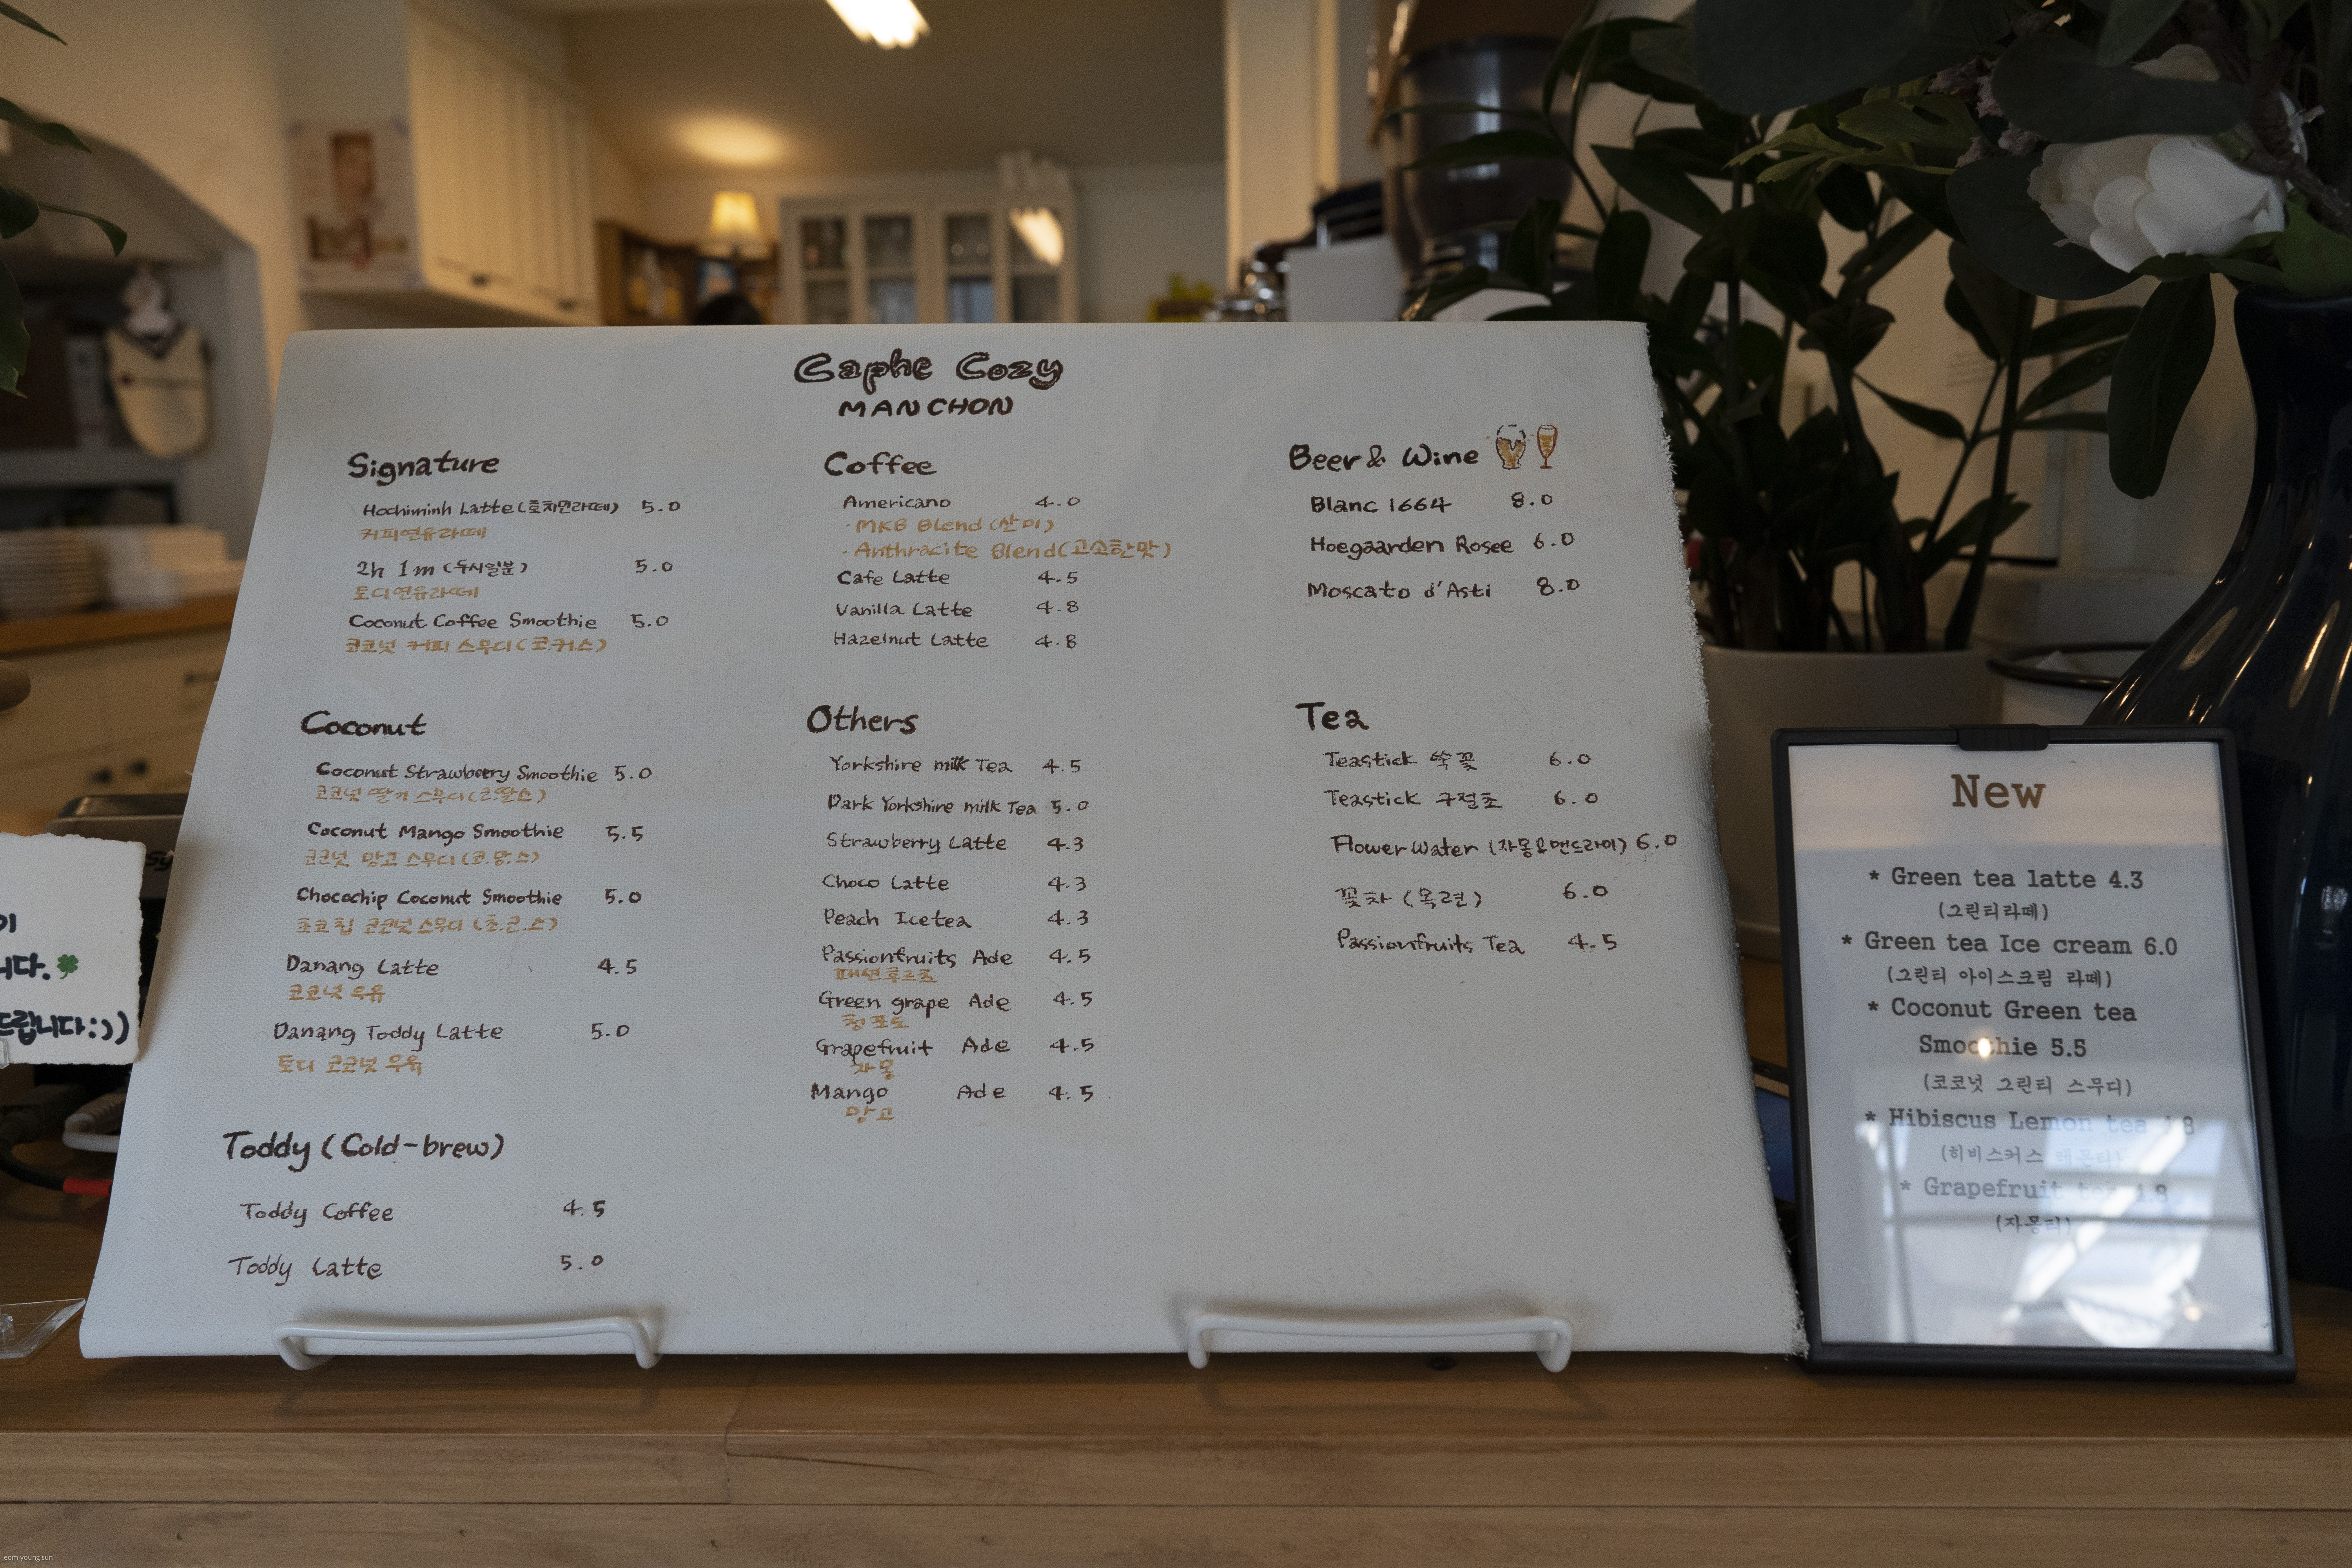 Caphe Cozy
MANCHON
Signature
Hochiminh Latte (호치민라떼) 5.0
커피연유라떼
2h 1m (두시일분) 5.0
토디연유라떼
Coconut Coffee Smoothie 5.0
코코넛 커피 스무디 (코.커.스)
Coconut
Coconut Strawberry Smoothie 5.0
코코넛 딸기 스무디 (코.딸.스)
Coconut Mango Smoothie 5.5
코코넛 망고 스무디 (코.망.스)
Chocochip Coconut Smoothie 5.0
초코칩 코코넛 스무디 (초.코.스)
Danang Latte 4.5
코코넛 우유
Danang Toddy Latte 5.0
토디 코코넛 우유
Toddy (Cold-brew)
Toddy Coffee 4.5
Toddy Latte 5.0
Coffee
Americano 4.0
· MKB Blend (산미)
· Anthracite Blend (고소한맛)
Cafe Latte 4.5
Vanilla Latte 4.8
Hazelnut Latte 4.8
Others
Yorkshire milk Tea 4.5
Dark Yorkshire milk Tea 5.0
Strawberry Latte 4.3
Choco Latte 4.3
Peach Icetea 4.3
Passionfruits Ade 4.5
패션후르츠
Green grape Ade 4.5
청포도
Grapefruit Ade 4.5
자몽
Mango Ade 4.5
망고
Beer & Wine
Blanc 1664 8.0
Hoegaarden Rosee 6.0
Moscato d'Asti 8.0
Tea
Teastick 쑥꽃 6.0
Teastick 구절초 6.0
Flower Water (자몽&맨드라미) 6.0
꽃차 (목련) 6.0
Passionfruits Tea 4.5
New
* Green tea latte 4.3
(그린티라떼)
* Green tea Ice cream 6.0
(그린티 아이스크림 라떼)
* Coconut Green tea
Smoothie 5.5
(코코넛 그린티 스무디)
* Hibiscus Lemon tea 4.8
(히비스커스 레몬티)
* Grapefruit tea 4.8
(자몽티)
이
니다.
드립니다:))
eom young sun